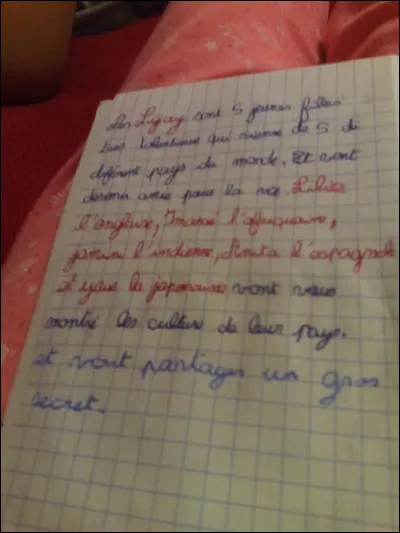 Les Ligay sont 5 jeunes filles
très talentueuse qui vienne de 5 di
différent pays du monde. Et vont
devenir amie pour la vie
l'anglaise, l'afriquaine,
l'indienne, Anita l'espagnole
et la japonaise vont vous
montré les culture de leur pays.
et vont partager un gros
secret.